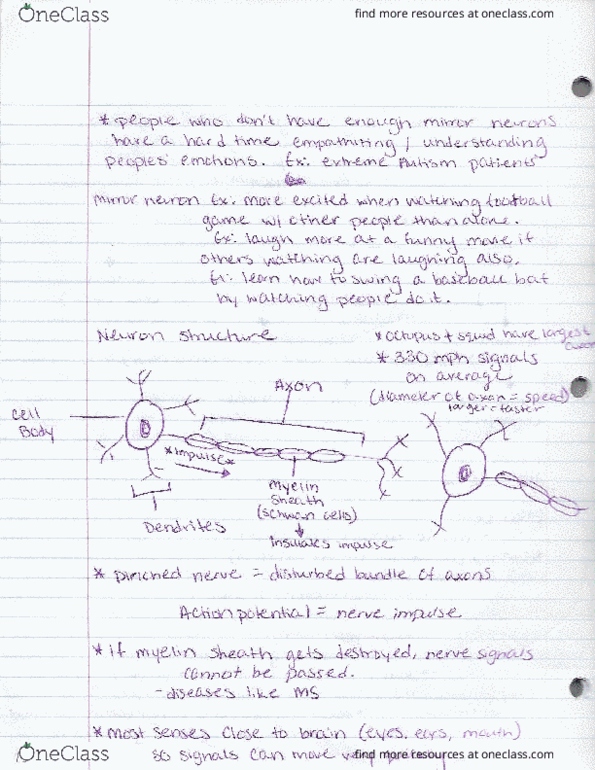 OneClass
find more resources at oneclass.com
* people who don't have enough mirror neurons
have a hard time empathiting / understanding
peoples' emotions. Ex: extreme Autism patients
mirror neuron Ex: more excited when watching football
game w/ other people than alone.
Ex: laugh more at a funny movie if
others watching are laughing also.
Ex: learn how to swing a baseball bat
by watching people do it.
Neuron structure
* octopus + squid have largest
axon
* 330 mph signals
on average
(diameter of axon = speed)
larger = faster
Axon
cell
Body
*Impulse*
Myelin
Sheath
(schwan cells)
Insulates impulse
Dendrites
* pinched nerve = disturbed bundle of axons
Action potential = nerve impulse
* if myelin sheath gets destroyed, nerve signals
cannot be passed.
- diseases like MS
* most senses close to brain (eyes, ears, mouth)
so signals can move very
OneClass
find more resources at oneclass.com